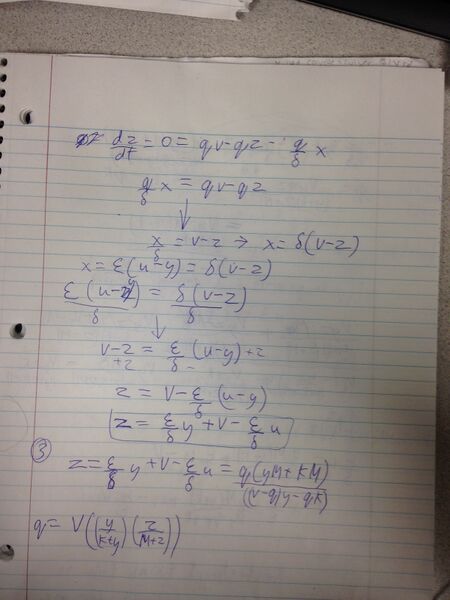 dz/dt = 0 = qv - qz - q/δ x
q/δ x = qv - qz
↓
x/δ = v - z → x = δ(v - z)
x = ε(u - y) = δ(v - z)
ε(u - y)/δ = δ(v - z)/δ
↓
v - z = ε/δ (u - y) + z
+z
z = v - ε/δ (u - y)
z = ε/δ y + v - ε/δ u
③
z = ε/δ y + v - ε/δ u = q(yM + KM)/((v - q)y - qK)
q = V((y/(K+y))(z/(M+z)))